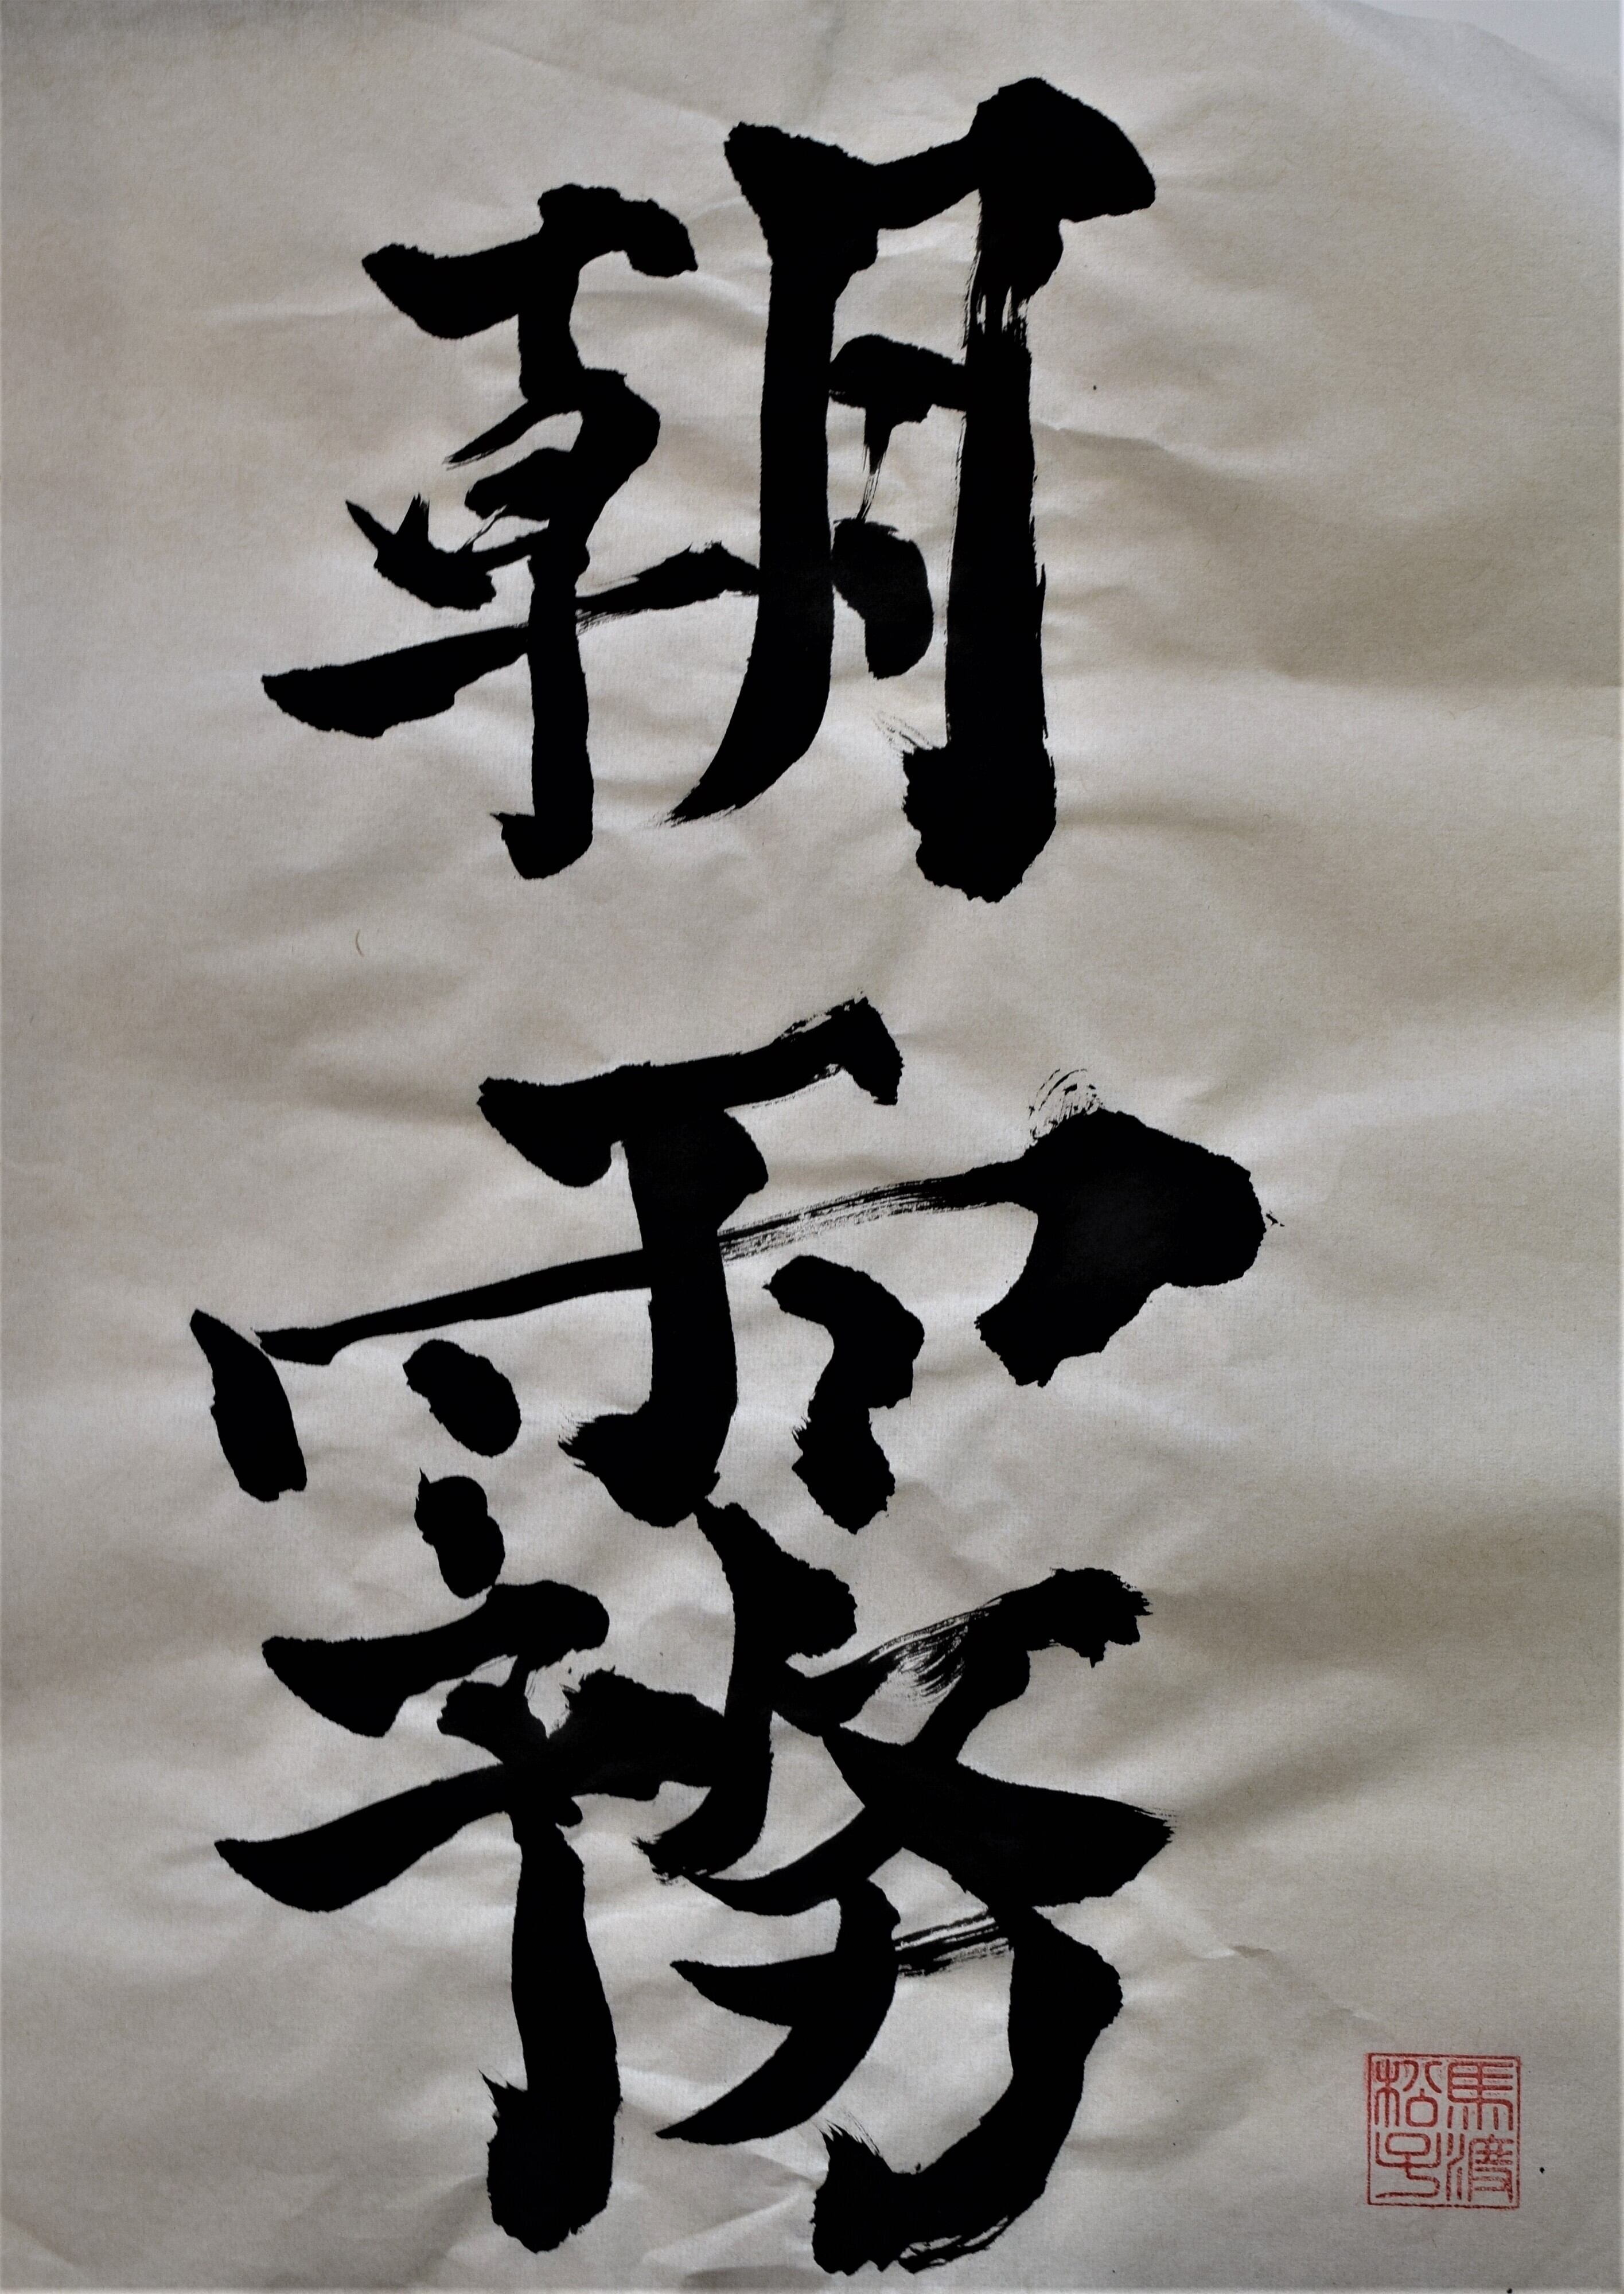 朝霧
馬渡
松子